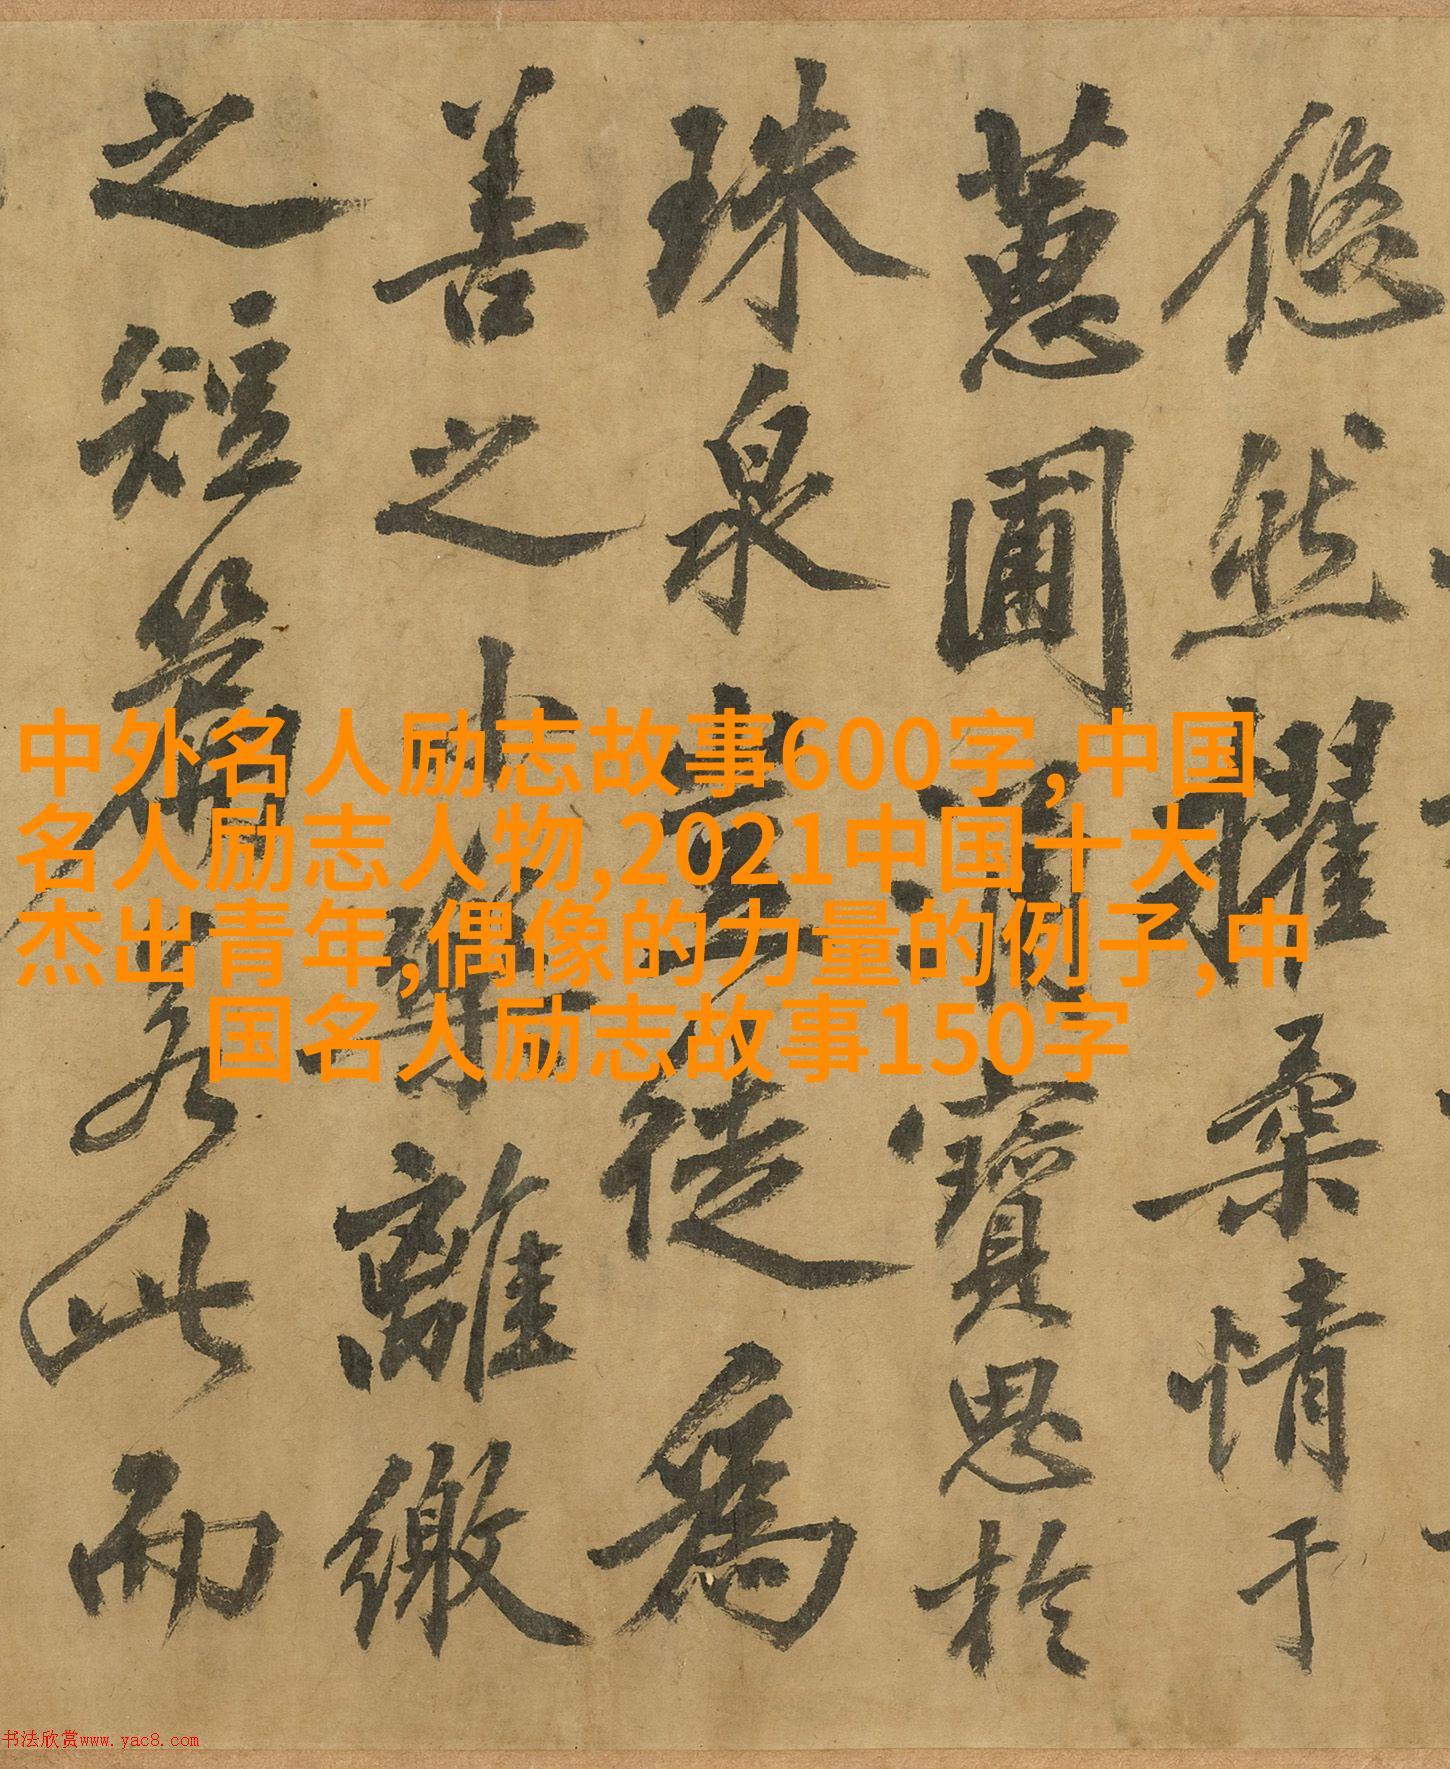 悠然擢柔情于
蕙圃涌寶思於
珠泉豈徒為
善之小樂離繳
之短篇若此而
中外名人励志故事600字,中国
名人励志人物,2021中国十大
杰出青年,偶像的力量的例子,中
国名人励志故事150字
书法欣赏www.yac8.com